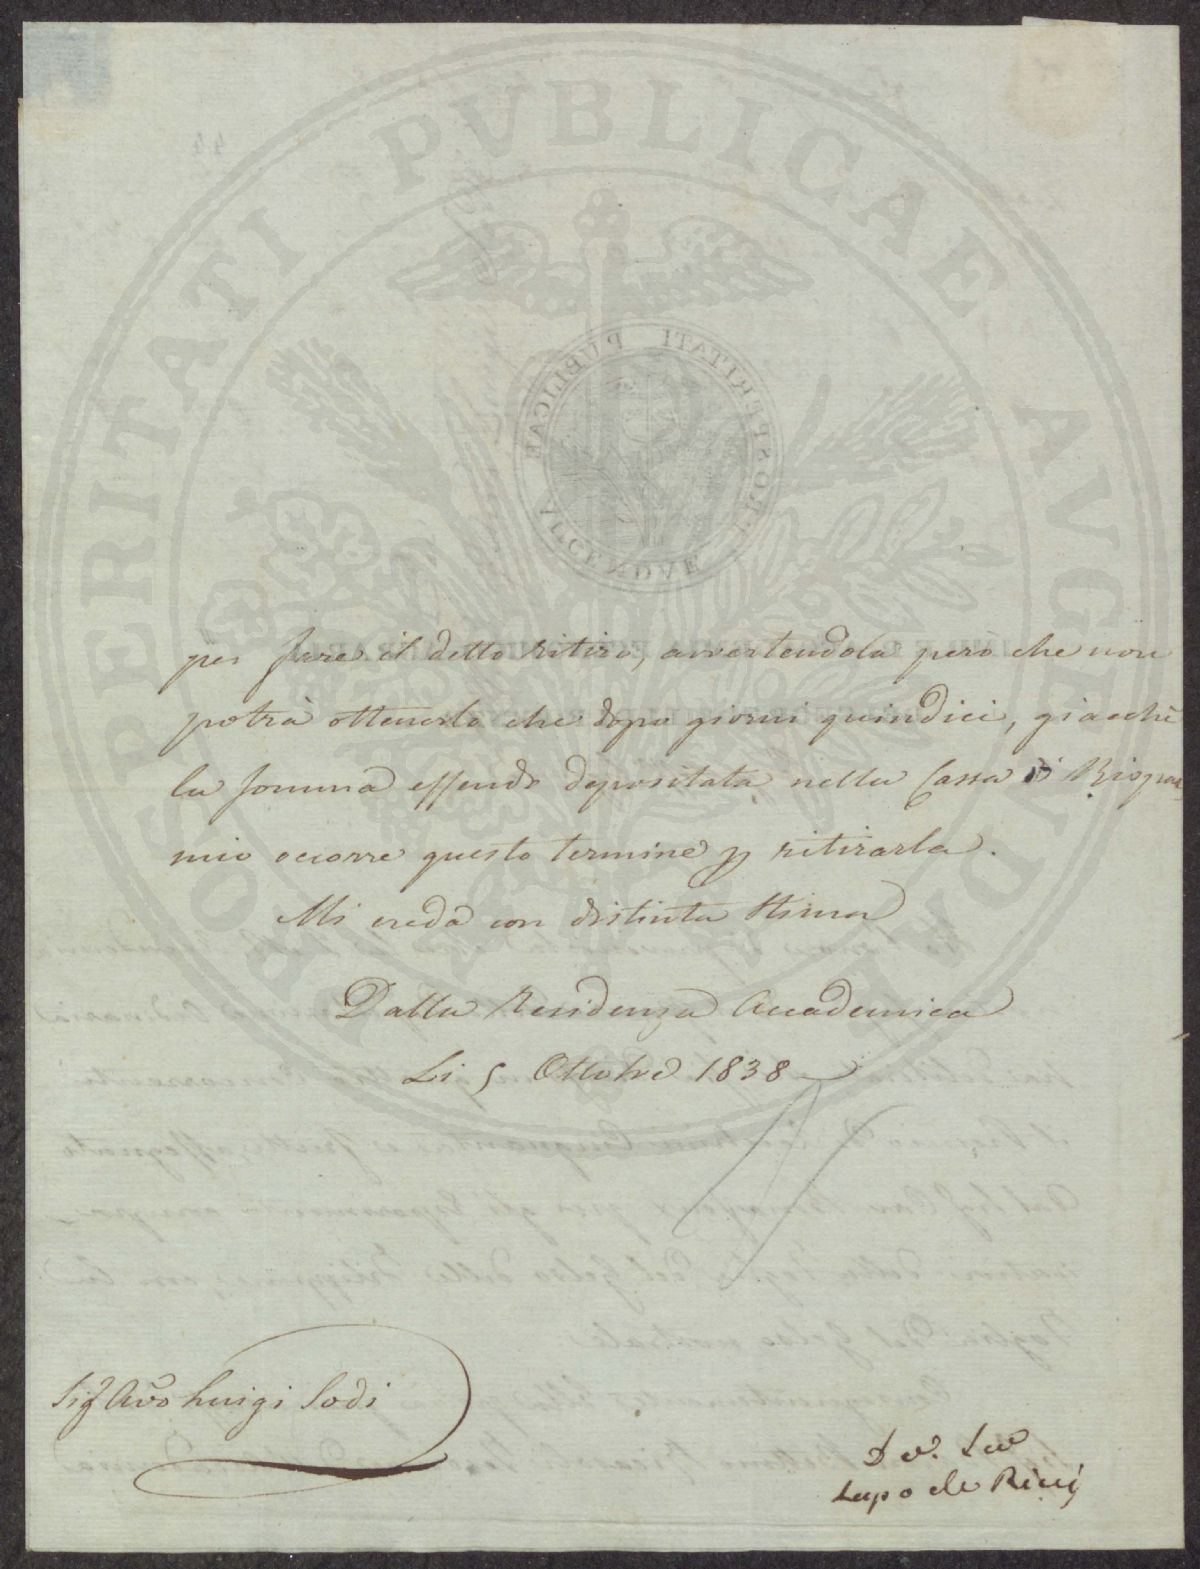 PROSPERITATI PUBLICAE AUGENDAE
PROSPERITATI PUBLICAE AUGENDAE
per fare il detto ritiro, avvertendola però che non
potrà ottenerlo che dopo giorni quindici, giacchè
la somma essendo depositata nella Cassa di Rispar=
mio occorre questo termine p ritirarla.
Mi creda con distinta stima
Dalla Residenza Accademica
Li 5 Ottobre 1838
Sig Avvo Luigi Sodi
Lapo de Ricci